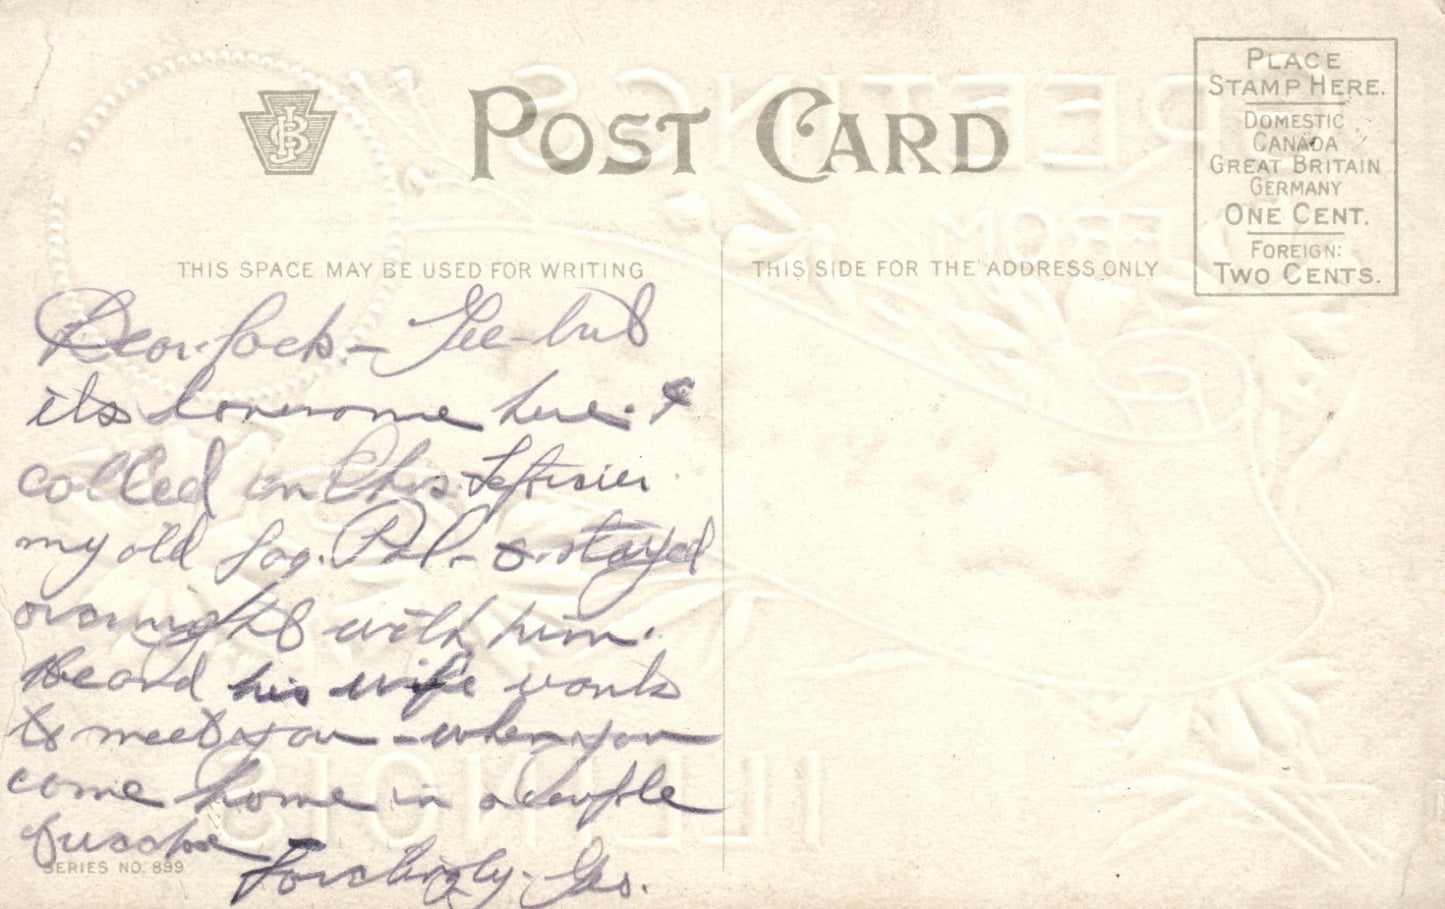 POST CARD
PLACE
STAMP HERE.
DOMESTIC
CANADA
GREAT BRITAIN
GERMANY
ONE CENT.
FOREIGN:
TWO CENTS.
THIS SPACE MAY BE USED FOR WRITING
THIS SIDE FOR THE ADDRESS ONLY
Dear Jack. — Gee - but
its lonesome here. &
called on Chas.
my old Pal - & stayed
overnight with him.
Heard his wife wants
to meet you - when you
come home in a couple
Geo.
SERIES NO. 899
GREETINGS
FROM
ILLINOIS